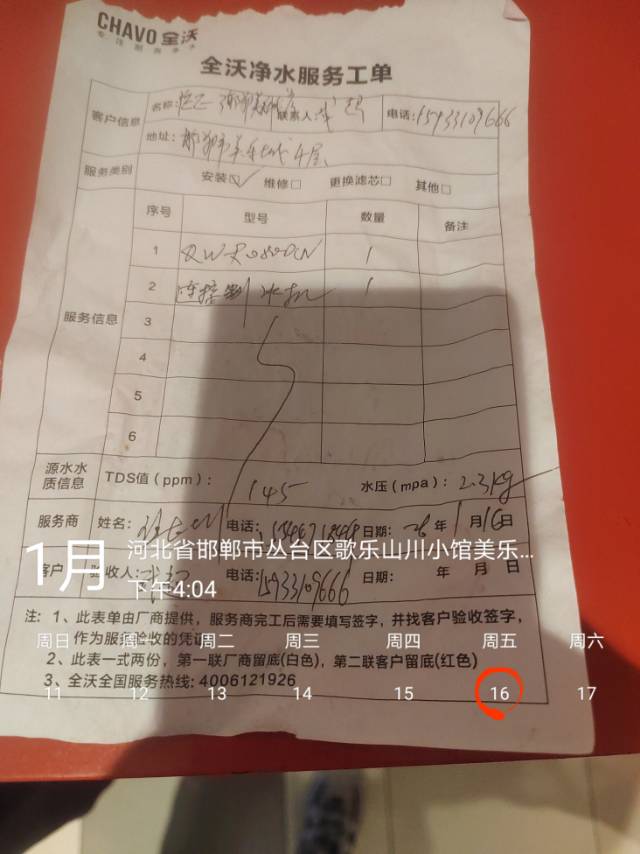 CHAVO 全沃
专注厨房净水
全沃净水服务工单
客户信息 名称: 联系人: 电话:15933109666
地址: 邯郸市美乐城4层
服务类别 安装☑ 维修□ 更换滤芯□ 其他□
服务信息 序号 型号 数量 备注
1 1
2 连接制冰机 1
3
4
5
6
源水水质信息 TDS值(ppm): 145 水压(mpa): 2.3kg
服务商 姓名: 电话: 日期: 26年1月16日
客户 验收人: 电话:15933109666 日期: 年 月 日
1月 河北省邯郸市丛台区歌乐山川小馆美乐...
下午4:04
注: 1、此表单由厂商提供，服务商完工后需要填写签字，并找客户验收签字，
作为服务验收的凭证
2、此表一式两份，第一联厂商留底(白色)，第二联客户留底(红色)
3、全沃全国服务热线: 4006121926
周日 周一 周二 周三 周四 周五 周六
11 12 13 14 15 16 17